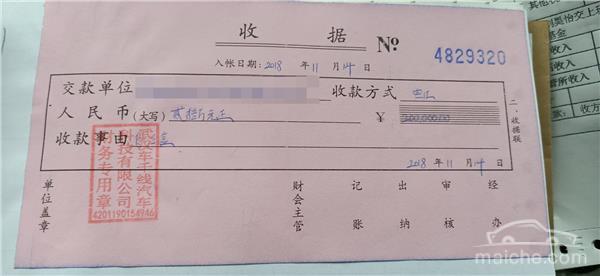 收据
№ 4829320
入帐日期：2018 年 11 月 14 日
交款单位 收款方式
人民币（大写）贰拾万元正 ￥ 200,000.00
收款事由
2018 年 11 月 14 日
二、收据联
单位盖章
财会主管 记账 出纳 审核 经办
武汉车千线汽车
科技有限公司
财务专用章
4201190154946
maiche.com